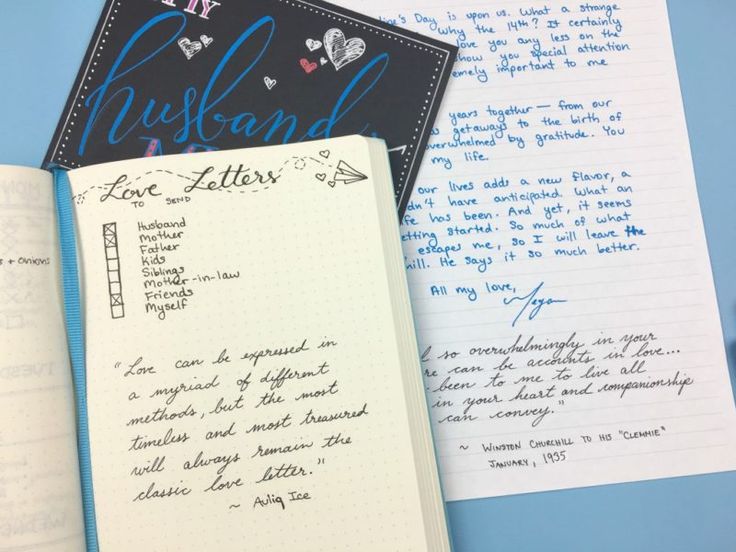 husband
Love Letters
TO SEND
Husband
Mother
Father
Kids
Siblings
Mother-in-law
Friends
Myself
"Love can be expressed in
a myriad of different
methods, but the most
timeless and most treasured
will always remain the
classic love letter."
~ Auliq Ice
Day is upon us. What a strange
why the 14th? It certainly
love you any less on the
show you special attention
important to me
years together — from our
getaways to the birth of
overwhelmed by gratitude. You
my life.
our lives adds a new flavor, a
have anticipated. What an
has been. And yet, it seems
started. So much of what
escapes me, so I will leave the
He says it so much better.
All my love,
Megan
so overwhelmingly in your
can be accounts in love...
been to me to live all
in your heart and companionship
can convey."
~ WINSTON CHURCHILL TO HIS "CLEMMIE"
JANUARY, 1935
+ onions